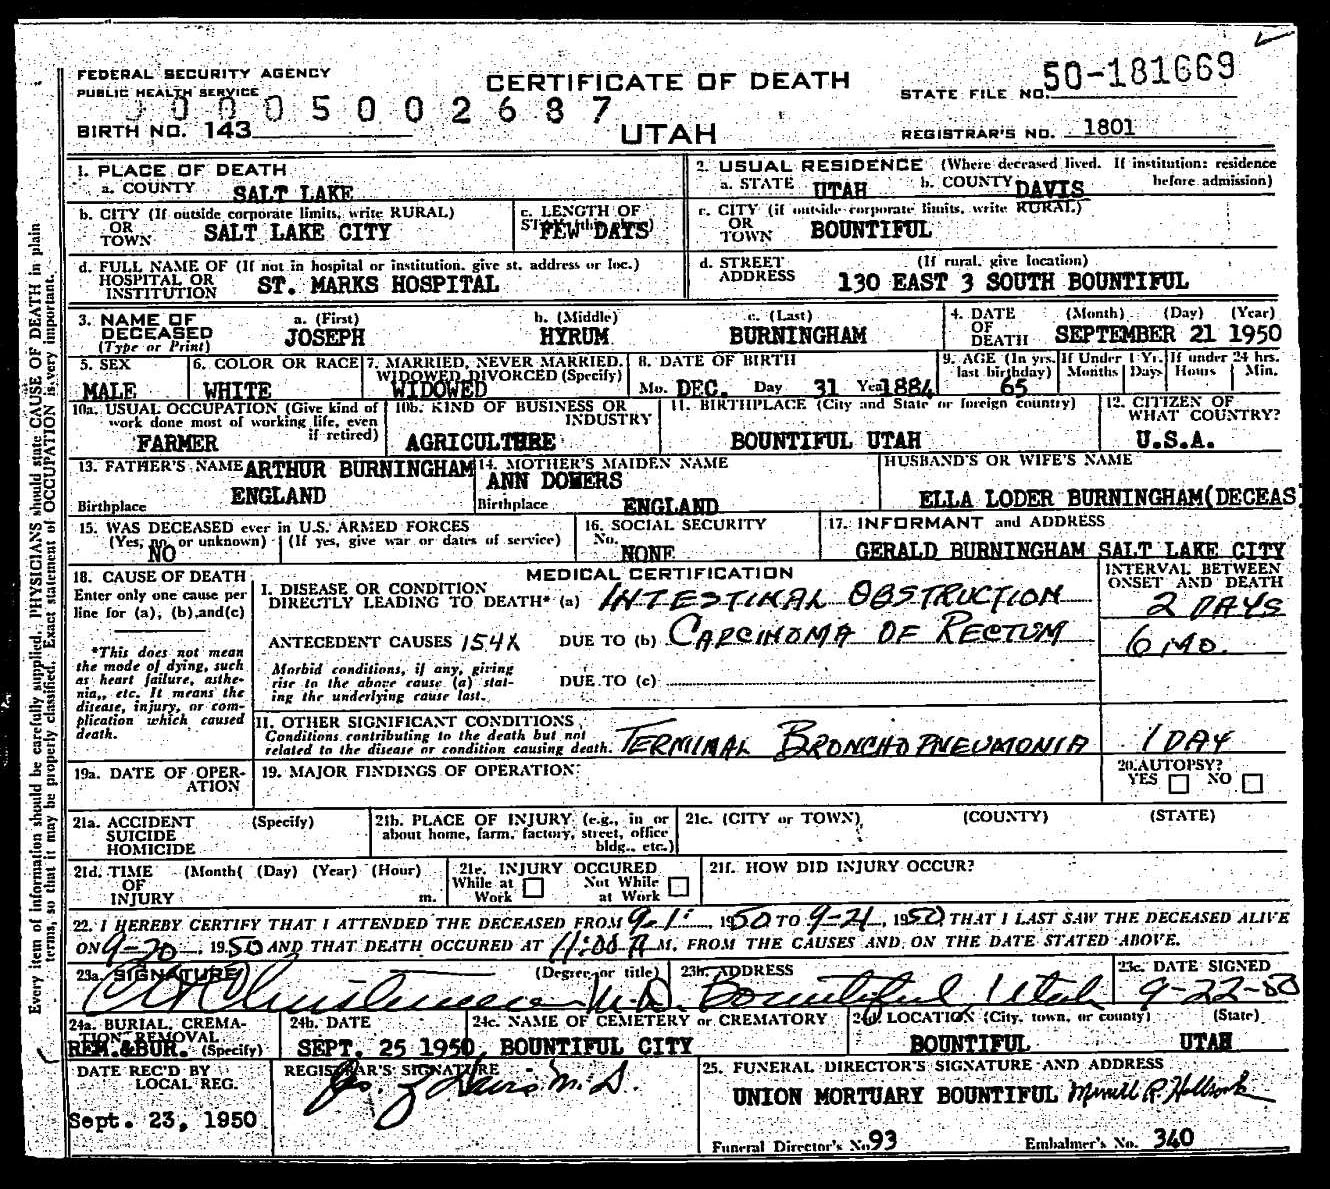 FEDERAL SECURITY AGENCY
PUBLIC HEALTH SERVICE
CERTIFICATE OF DEATH
UTAH
STATE FILE NO. 50-181669
0005002687
BIRTH NO. 143
REGISTRAR'S NO. 1801
1. PLACE OF DEATH
a. COUNTY SALT LAKE
2. USUAL RESIDENCE (Where deceased lived. If institution: residence before admission)
a. STATE UTAH b. COUNTY DAVIS
b. CITY (If outside corporate limits, write RURAL) OR TOWN SALT LAKE CITY
c. LENGTH OF FEW DAYS
c. CITY (if outside corporate limits, write RURAL) OR TOWN BOUNTIFUL
d. FULL NAME OF (If not in hospital or institution, give st. address or loc.) HOSPITAL OR INSTITUTION ST. MARKS HOSPITAL
d. STREET ADDRESS (If rural, give location) 130 EAST 3 SOUTH BOUNTIFUL
3. NAME OF DECEASED (Type or Print)
a. (First) JOSEPH
b. (Middle) HYRUM
c. (Last) BURNINGHAM
4. DATE OF DEATH (Month) (Day) (Year) SEPTEMBER 21 1950
5. SEX MALE
6. COLOR OR RACE WHITE
7. MARRIED, NEVER MARRIED, WIDOWED DIVORCED (Specify) WIDOWED
8. DATE OF BIRTH Mo. DEC. Day 31 Year 1884
9. AGE (In yrs. last birthday) 65
If Under 1 Yr. Months Days
If under 24 hrs. Hours Min.
10a. USUAL OCCUPATION (Give kind of work done most of working life, even if retired) FARMER
10b. KIND OF BUSINESS OR INDUSTRY AGRICULTURE
11. BIRTHPLACE (City and State or foreign country) BOUNTIFUL UTAH
12. CITIZEN OF WHAT COUNTRY? U.S.A.
13. FATHER'S NAME ARTHUR BURNINGHAM
Birthplace ENGLAND
14. MOTHER'S MAIDEN NAME ANN DOWERS
Birthplace ENGLAND
HUSBAND'S OR WIFE'S NAME
ELLA LODER BURNINGHAM(DECEAS
15. WAS DECEASED ever in U.S. ARMED FORCES
(Yes, no, or unknown) (If yes, give war or dates of service)
NO
16. SOCIAL SECURITY No. NONE
17. INFORMANT and ADDRESS
GERALD BURNINGHAM SALT LAKE CITY
18. CAUSE OF DEATH
Enter only one cause per line for (a), (b), and (c)
*This does not mean the mode of dying, such as heart failure, asthenia, etc. It means the disease, injury, or complication which caused death.
MEDICAL CERTIFICATION
INTERVAL BETWEEN ONSET AND DEATH
I. DISEASE OR CONDITION DIRECTLY LEADING TO DEATH* (a) INTESTINAL OBSTRUCTION 2 DAYS
ANTECEDENT CAUSES 154X DUE TO (b) CARCINOMA OF RECTUM 6 MO.
Morbid conditions, if any, giving rise to the above cause (a) stating the underlying cause last. DUE TO (c)
II. OTHER SIGNIFICANT CONDITIONS
Conditions contributing to the death but not related to the disease or condition causing death. TERMINAL BRONCHOPNEUMONIA 1 DAY
19a. DATE OF OPERATION
19. MAJOR FINDINGS OF OPERATION
20. AUTOPSY? YES NO
21a. ACCIDENT SUICIDE HOMICIDE (Specify)
21b. PLACE OF INJURY (e.g., in or about home, farm, factory, street, office bldg., etc.)
21c. (CITY or TOWN) (COUNTY) (STATE)
21d. TIME OF INJURY (Month( (Day) (Year) (Hour) m.
21e. INJURY OCCURED While at Work Not While at Work
21f. HOW DID INJURY OCCUR?
22. I HEREBY CERTIFY THAT I ATTENDED THE DECEASED FROM 9-1- 1950 TO 9-21, 1950, THAT I LAST SAW THE DECEASED ALIVE
ON 9-20, 1950 AND THAT DEATH OCCURED AT 11:00 A M. FROM THE CAUSES AND ON THE DATE STATED ABOVE.
23a. SIGNATURE (Degree or title) M.D.
23b. ADDRESS Bountiful, Utah
23c. DATE SIGNED 9-22-50
24a. BURIAL, CREMATION, REMOVAL (Specify) REM.&BUR.
24b. DATE SEPT. 25 1950
24c. NAME OF CEMETERY or CREMATORY BOUNTIFUL CITY
24d. LOCATION (City, town, or county) (State) BOUNTIFUL UTAH
DATE REC'D BY LOCAL REG. Sept. 23, 1950
REGISTRAR'S SIGNATURE M.D.
25. FUNERAL DIRECTOR'S SIGNATURE AND ADDRESS
UNION MORTUARY BOUNTIFUL
Funeral Director's No. 93 Embalmer's No. 340
Every item of information should be carefully supplied. PHYSICIANS should state CAUSE OF DEATH in plain
terms, so that it may be properly classified. Exact statement of OCCUPATION is very important.